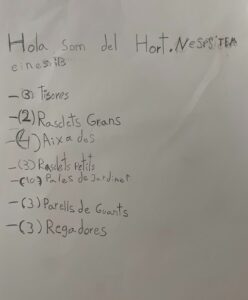 Hola som del Hort. Nesesitem
eines:
-(3) Tisores
-(2) Rasclets Grans
-(4) Aixades
-(3) Rasclets Petits
-(10) Pales de Jardinet
-(3) Parells de Guants
-(3) Regadores